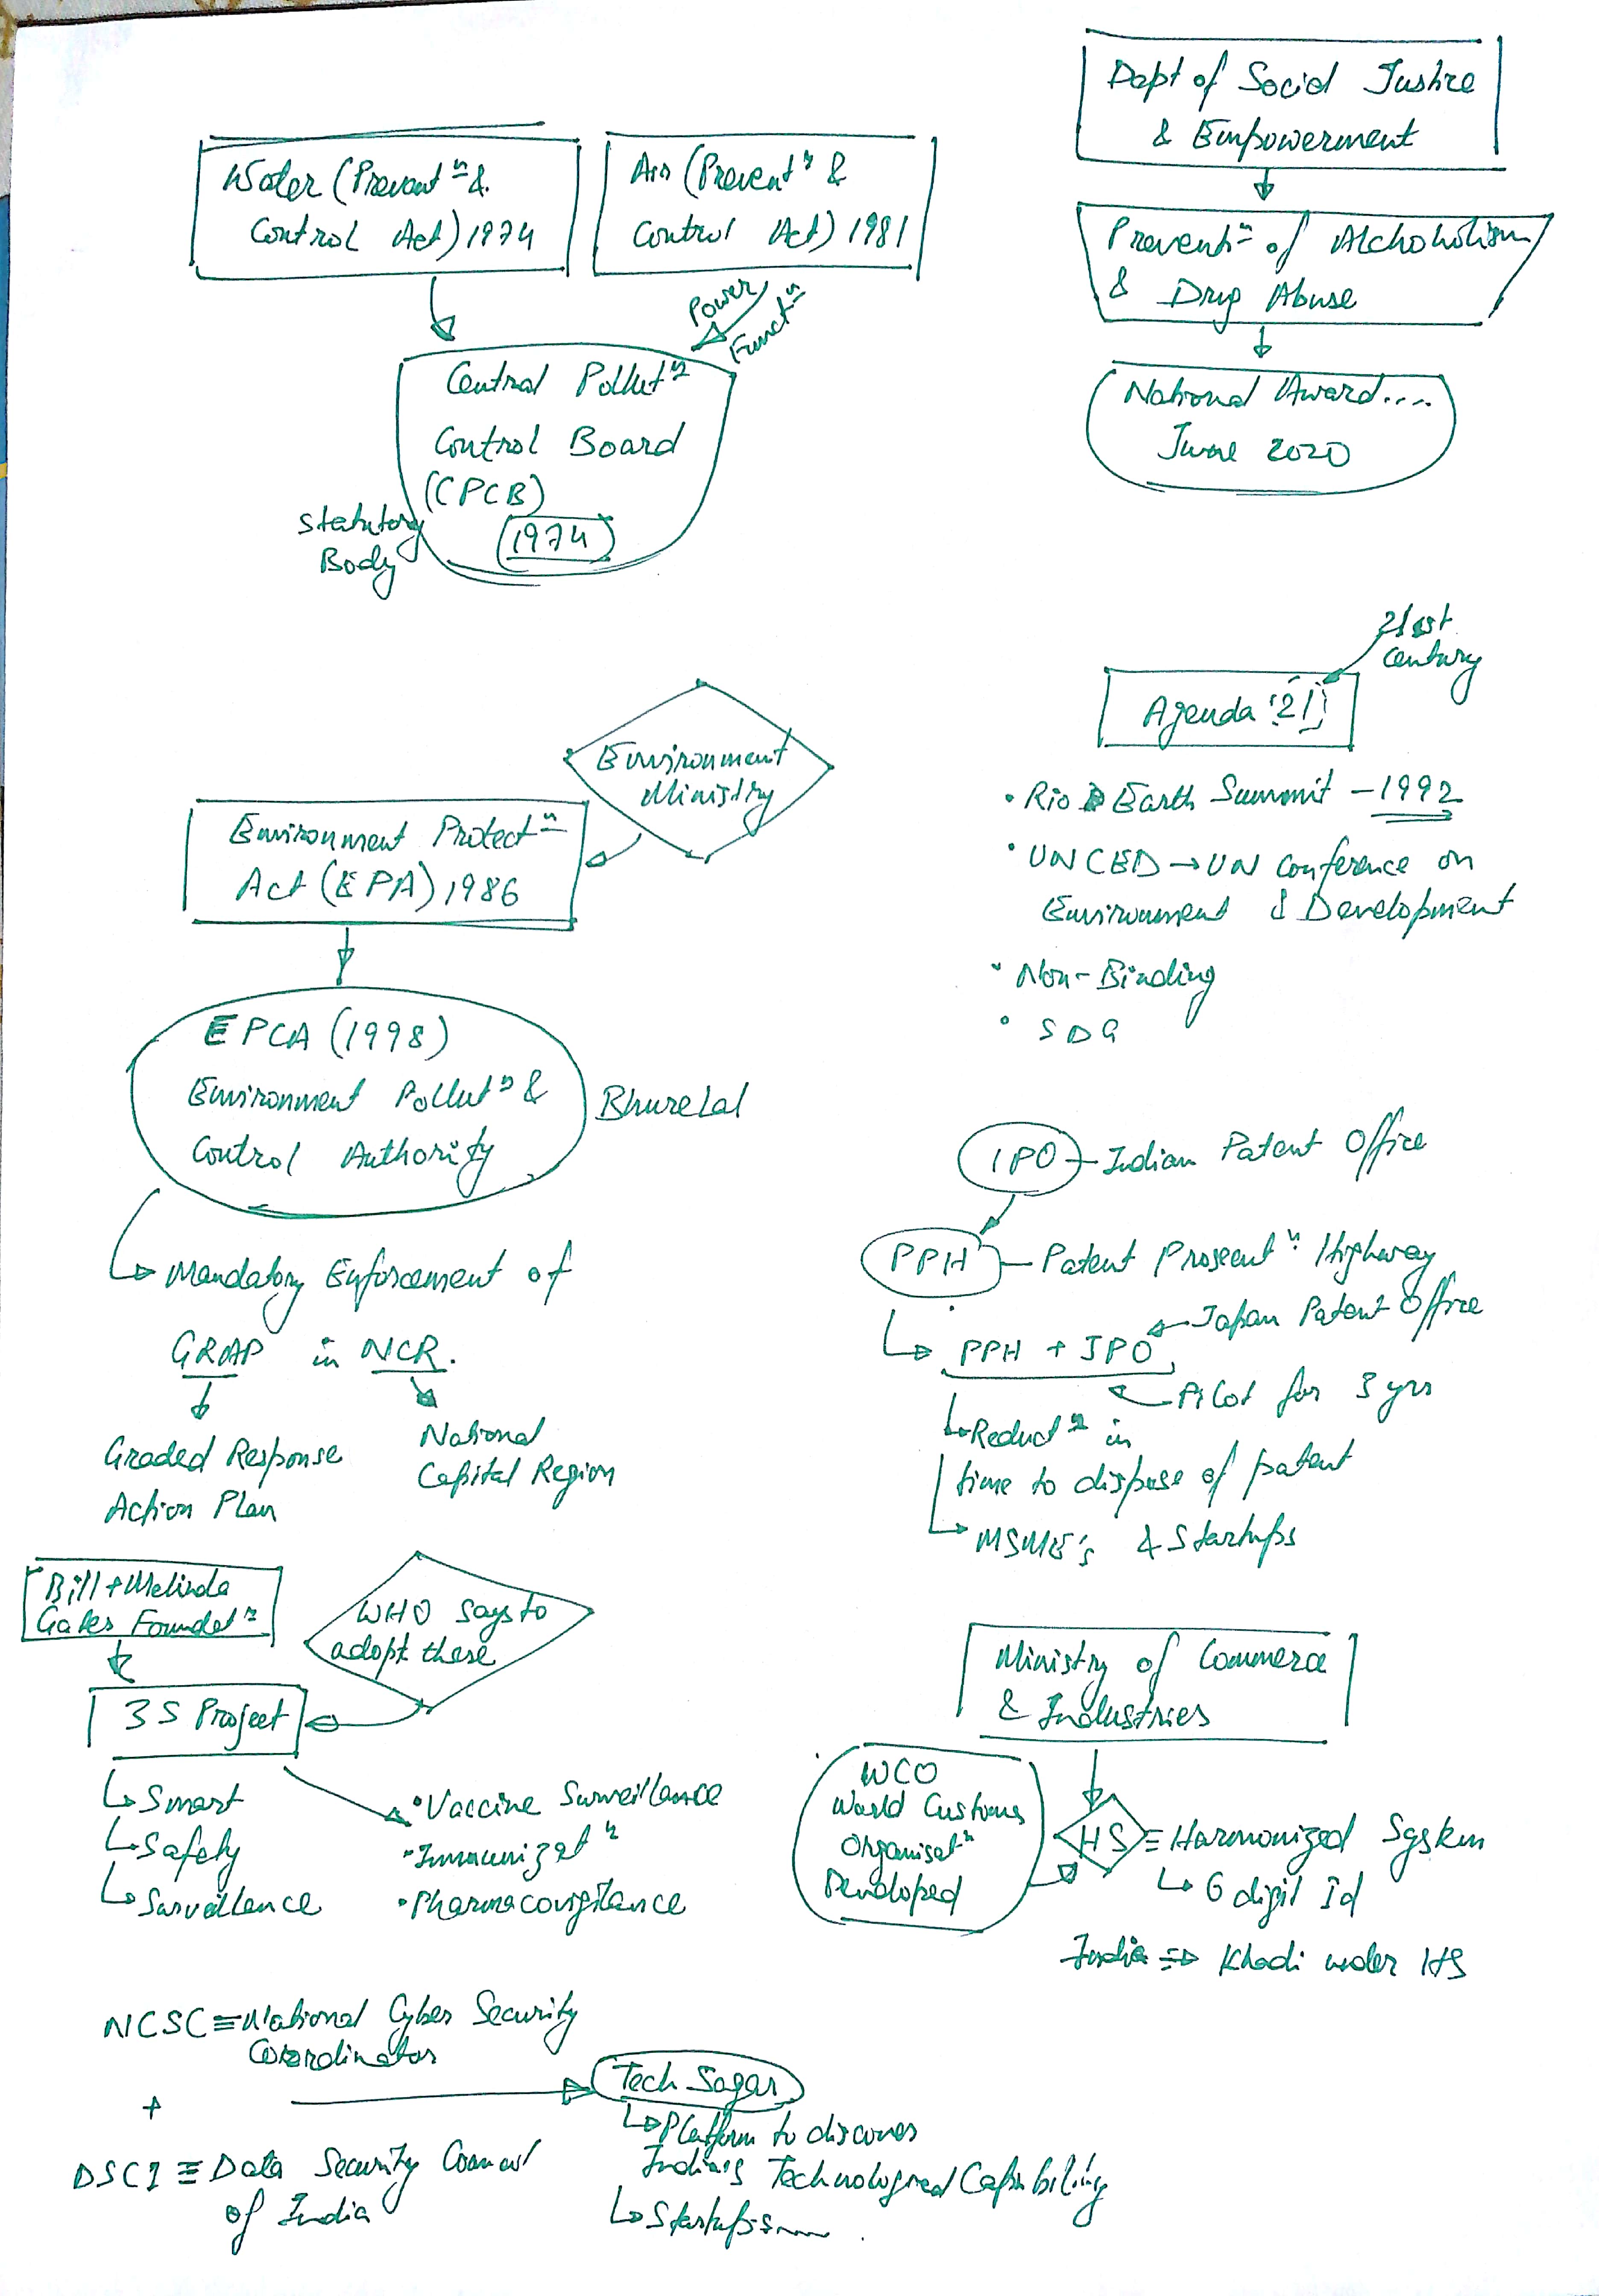 Water (Prevent^n &
Control Act) 1974
Air (Prevent^n &
Control Act) 1981
Power
Funct^n
Central Pollut^n
Control Board
(CPCB)
1974
Statutory
Body
Dept of Social Justice
& Empowerment
Prevent^n of Alchoholism
& Drug Abuse
National Award....
June 2020
Environment
Ministry
Environment Protect^n
Act (EPA) 1986
EPCA (1998)
Environment Pollut^n &
Control Authority
Bhurelal
Mandatory Enforcement of
GRAP in NCR.
Graded Response
Action Plan
National
Capital Region
21st
Century
Agenda '21'
• Rio Earth Summit - 1992
• UNCED → UN Conference on
Environment & Development
• Non-Binding
• SDG
IPO - Indian Patent Office
PPH - Patent Prosecut^n Highway
Japan Patent Office
PPH + JPO
Pilot for 3 yrs
Reduct^n in
time to dispose of patent
MSME's & Startups
Bill + Melinda
Gates Foundat^n
WHO says to
adopt these
3S Project
Smart
Safety
Surveillance
• Vaccine Surveillance
• Immunizat^n
• Pharmacovigilance
Ministry of Commerce
& Industries
WCO
World Customs
Organisat^n
Developed
HS ≡ Harmonized System
6 digit Id
India ⇒ Khadi under HS
NCSC ≡ National Cyber Security
Coordinator
+
DSCI ≡ Data Security Council
of India
Tech Sagar
Platform to discover
India's Technological Capability
Startups